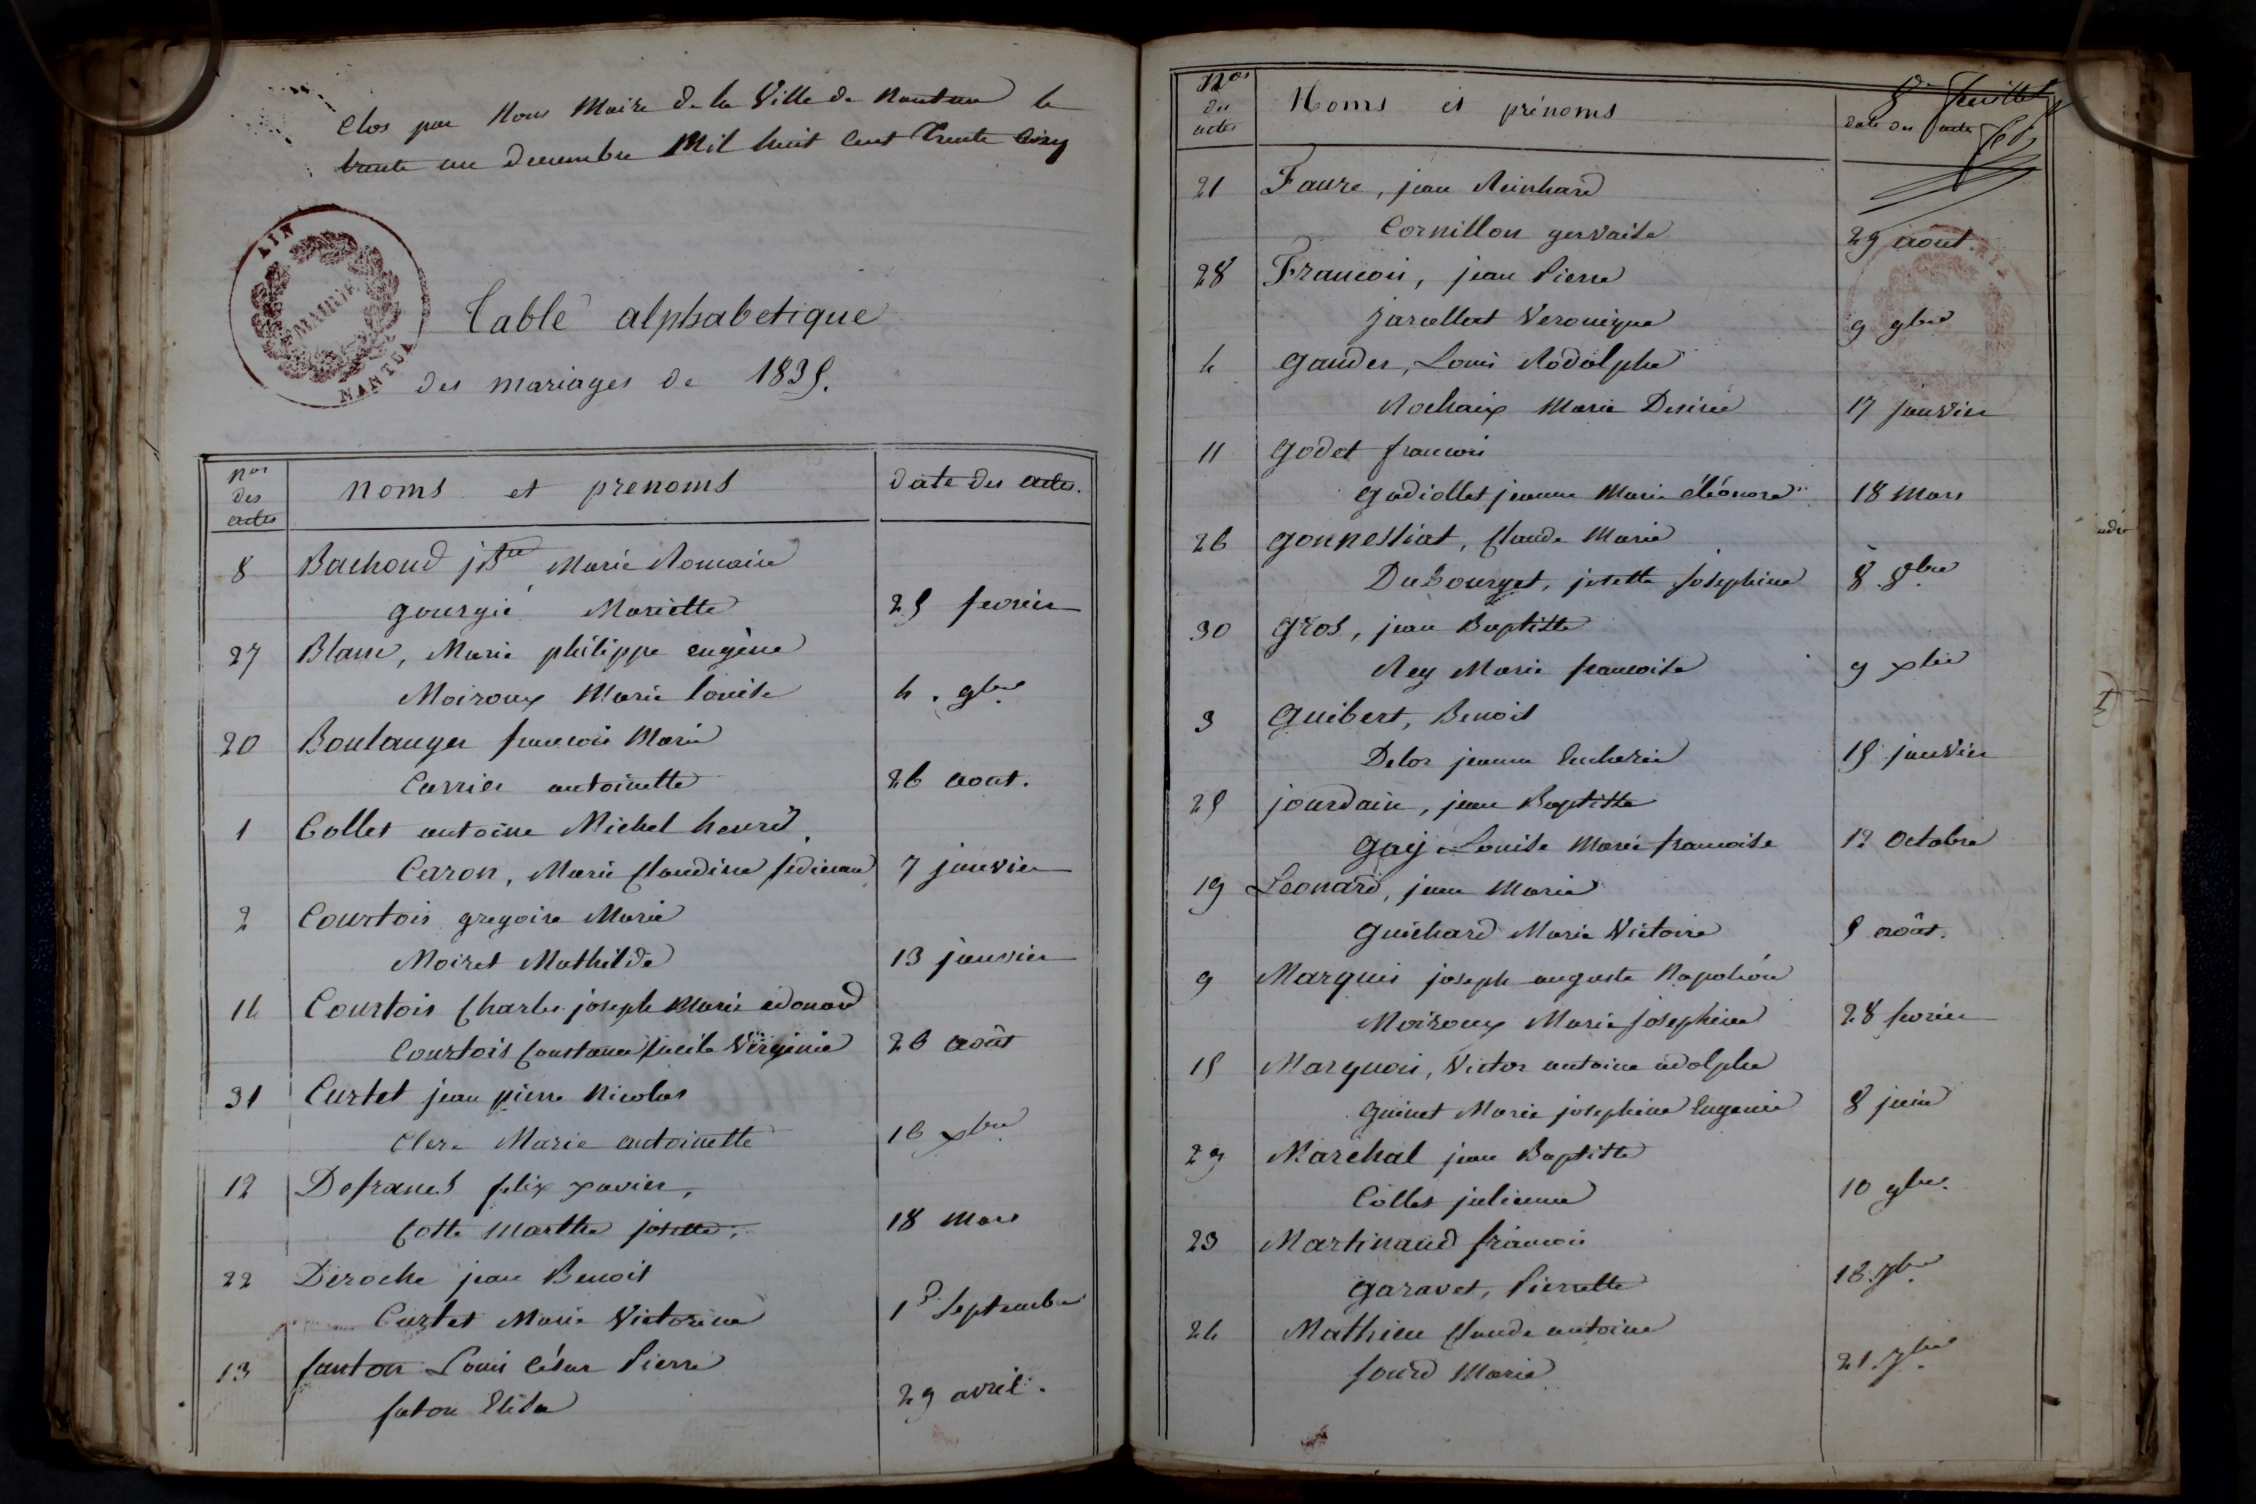 Clos par Nous Maire de la Ville de Nantua le
trente un decembre Mil huit Cent Trente Cinq
AIN
MAIRIE
NANTUA
Table alphabetique
des mariages de 1835.
Nos des actes
noms et prenoms
date des actes.
8 Bachoud jBte Marie Romain
gourgié Mariette 25 fevrier
27 Blanc, Marie philippe eugène
Moiroux Marie Louise 4. 9bre
20 Boulanger francois Marie
Carrier antoinette 26 aout.
1 Collet antoine Michel henri
Caron, Marie Claudine 7 janvier
2 Courtois gregoire Marie
Moiret Mathilde 13 janvier
14 Courtois Charles joseph Marie edouard
Courtois Constance Cecile Virginie 26 août
31 Curtet jean pierre Nicolas
Clerc Marie antoinette 16 xbre
12 Defranc felix xavier,
Cotte Marthe josette. 18 Mars
22 Deroche jean Benoit
Curtet Marie Victorine 1er Septembre
13 fanton Louis César Pierre
faton Elisa 29 avril.
Nos des actes
Noms et prénoms
date des actes
8e feuillet
21 Faure, jean Reinhard
Cornillon gervaise 29 aout.
28 Francois, jean Pierre
Jarcellat Veronique 9 9bre
4 Gauder, Louis Rodolphe
Rochaix Marie Desirée 17 janvier
11 Godet francois
Gadiollet jeanne Marie éléonore 18 Mars
26 Gonnessiat, Claude Marie
Dubourget, josette Josephine 8. 8bre
30 Gros, jean Baptiste
Rey Marie francoise 9 xbre
3 Guibert, Benoit
Delor jeanne Eucharie 15 janvier
25 jourdain, jean Baptiste
Gay Louise Marie francoise 12 Octobre
19 Leonard, jean Marie
Guichard Marie Victoire 5 août.
9 Marquis joseph auguste Napoléon
Moiroux Marie Josephine 28 fevrier
15 Marquois, Victor antoine adolphe
Guinet Marie josephine Eugenie 8 juin
29 Maréchal jean Baptiste
Collet julienne 10 9bre.
23 Martinand francois
Garavet, Pierrette 18. 7bre
24 Mathieu Claude antoine
foud Marie 21. 7bre